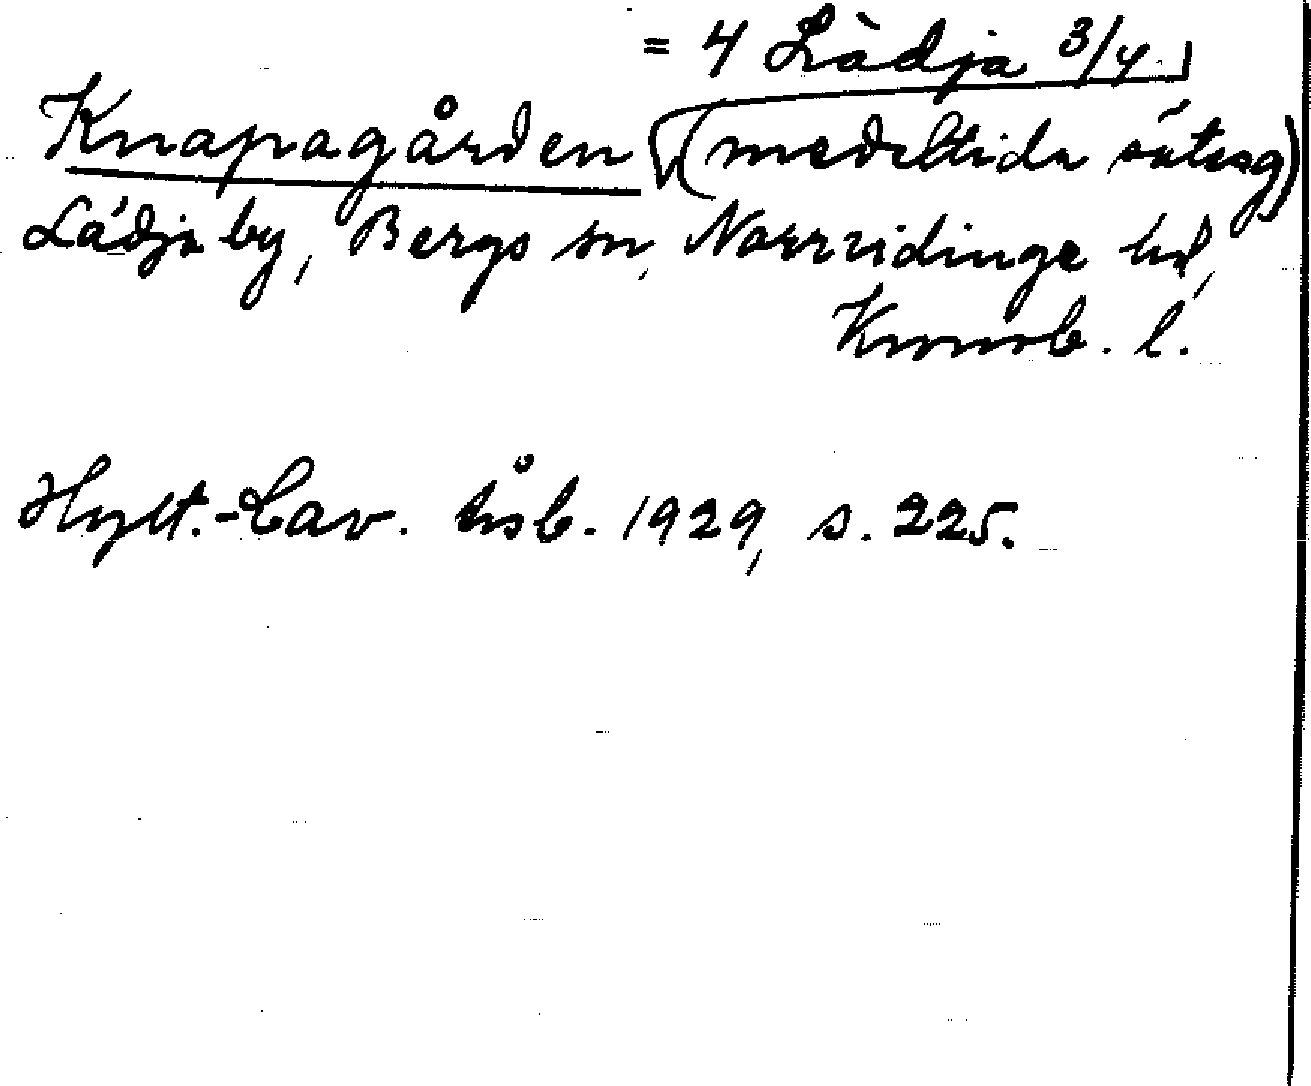 = 4 Lädja 3/4
Knapagården (medeltida sätesg)
Lädja by, Bergs sn, Norrvidinge hd,
Kronob. l.
Hylt.-Cav. årsb. 1929, s. 225.